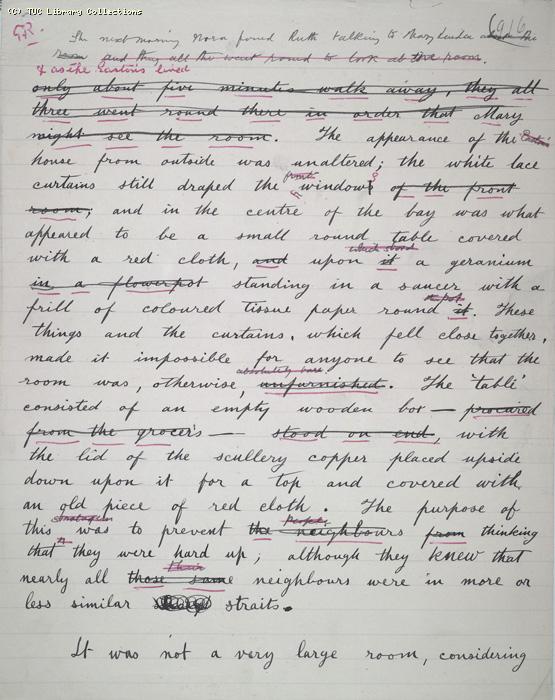 (C) TUC Library Collections
G.R.
(916
The next morning Nora found Ruth talking to Mary Linden
room and they all the went round to look at the room.
& as the Eastons lived
only about five minutes walk away, they all
three went round there in order that Mary
might see the room. The appearance of the
house from outside was unaltered; the white lace
front
curtains still draped the windows of the front
room; and in the centre of the bay was what
appeared to be a small round table covered
which stood
with a red cloth, and upon it a geranium
in a flowerpot standing in a saucer with a
frill of coloured tissue paper round it. These
things and the curtains, which fell close together,
made it impossible for anyone to see that the
absolutely bare
room was, otherwise, unfurnished. The 'table'
consisted of an empty wooden box — procured
from the grocer's — stood on end, with
the lid of the scullery copper placed upside
down upon it for a top and covered with
an old piece of red cloth. The purpose of
stratagem
this was to prevent the neighbours from thinking
that they were hard up; although they knew that
their
nearly all those same neighbours were in more or
less similar straits.
It was not a very large room, considering